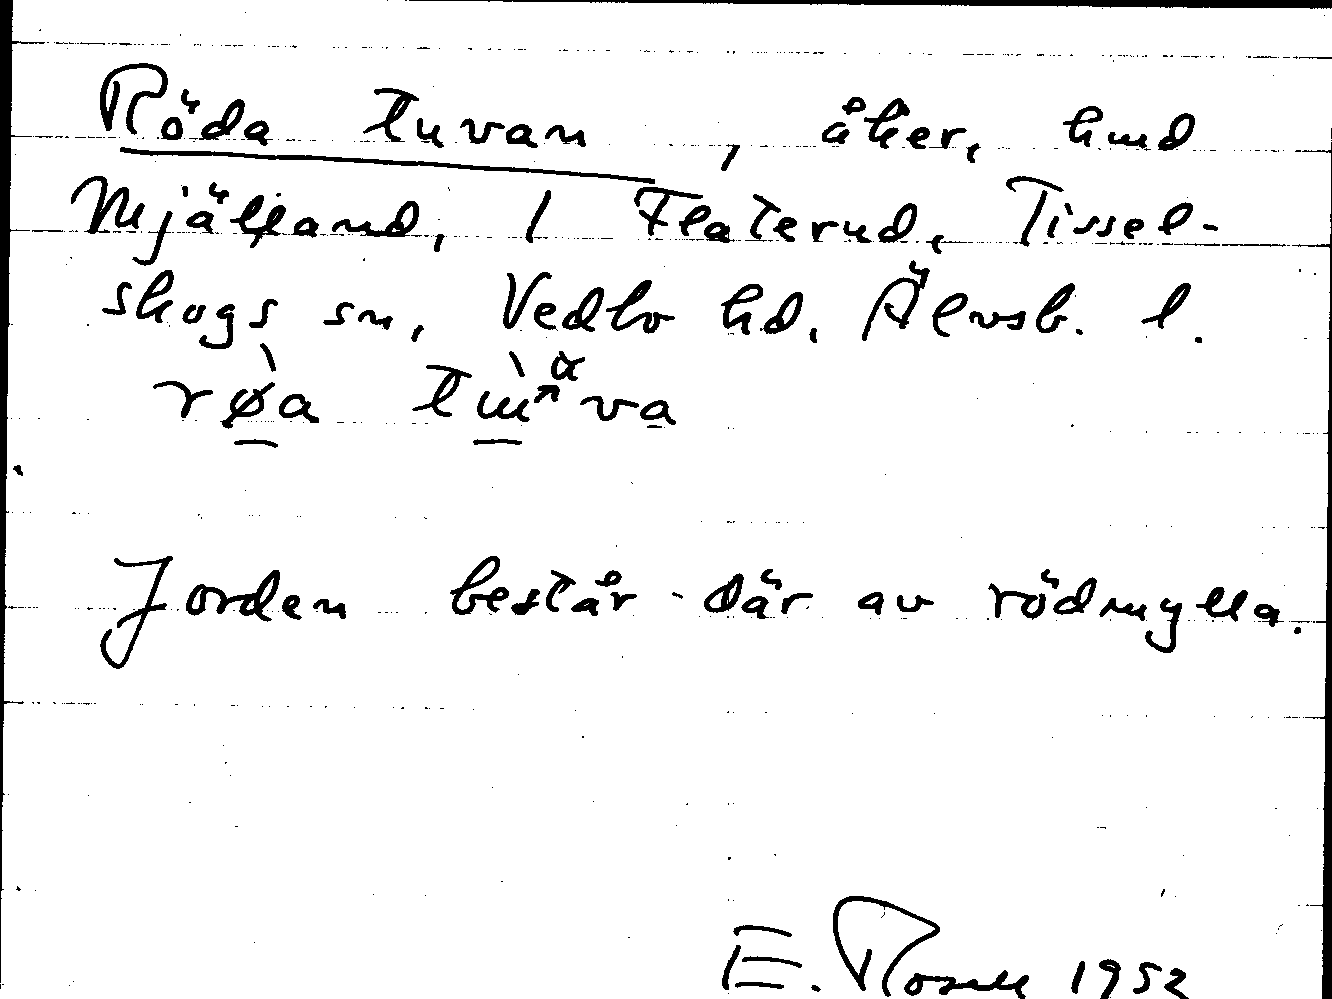 Röda tuvan, åker, hmd
Mjälland, 1 Flaterud, Tissel-
skogs sn, Vedbo hd. Älvsb. l.
røa
Jorden består där av rödmylla.
E. Rosell 1952